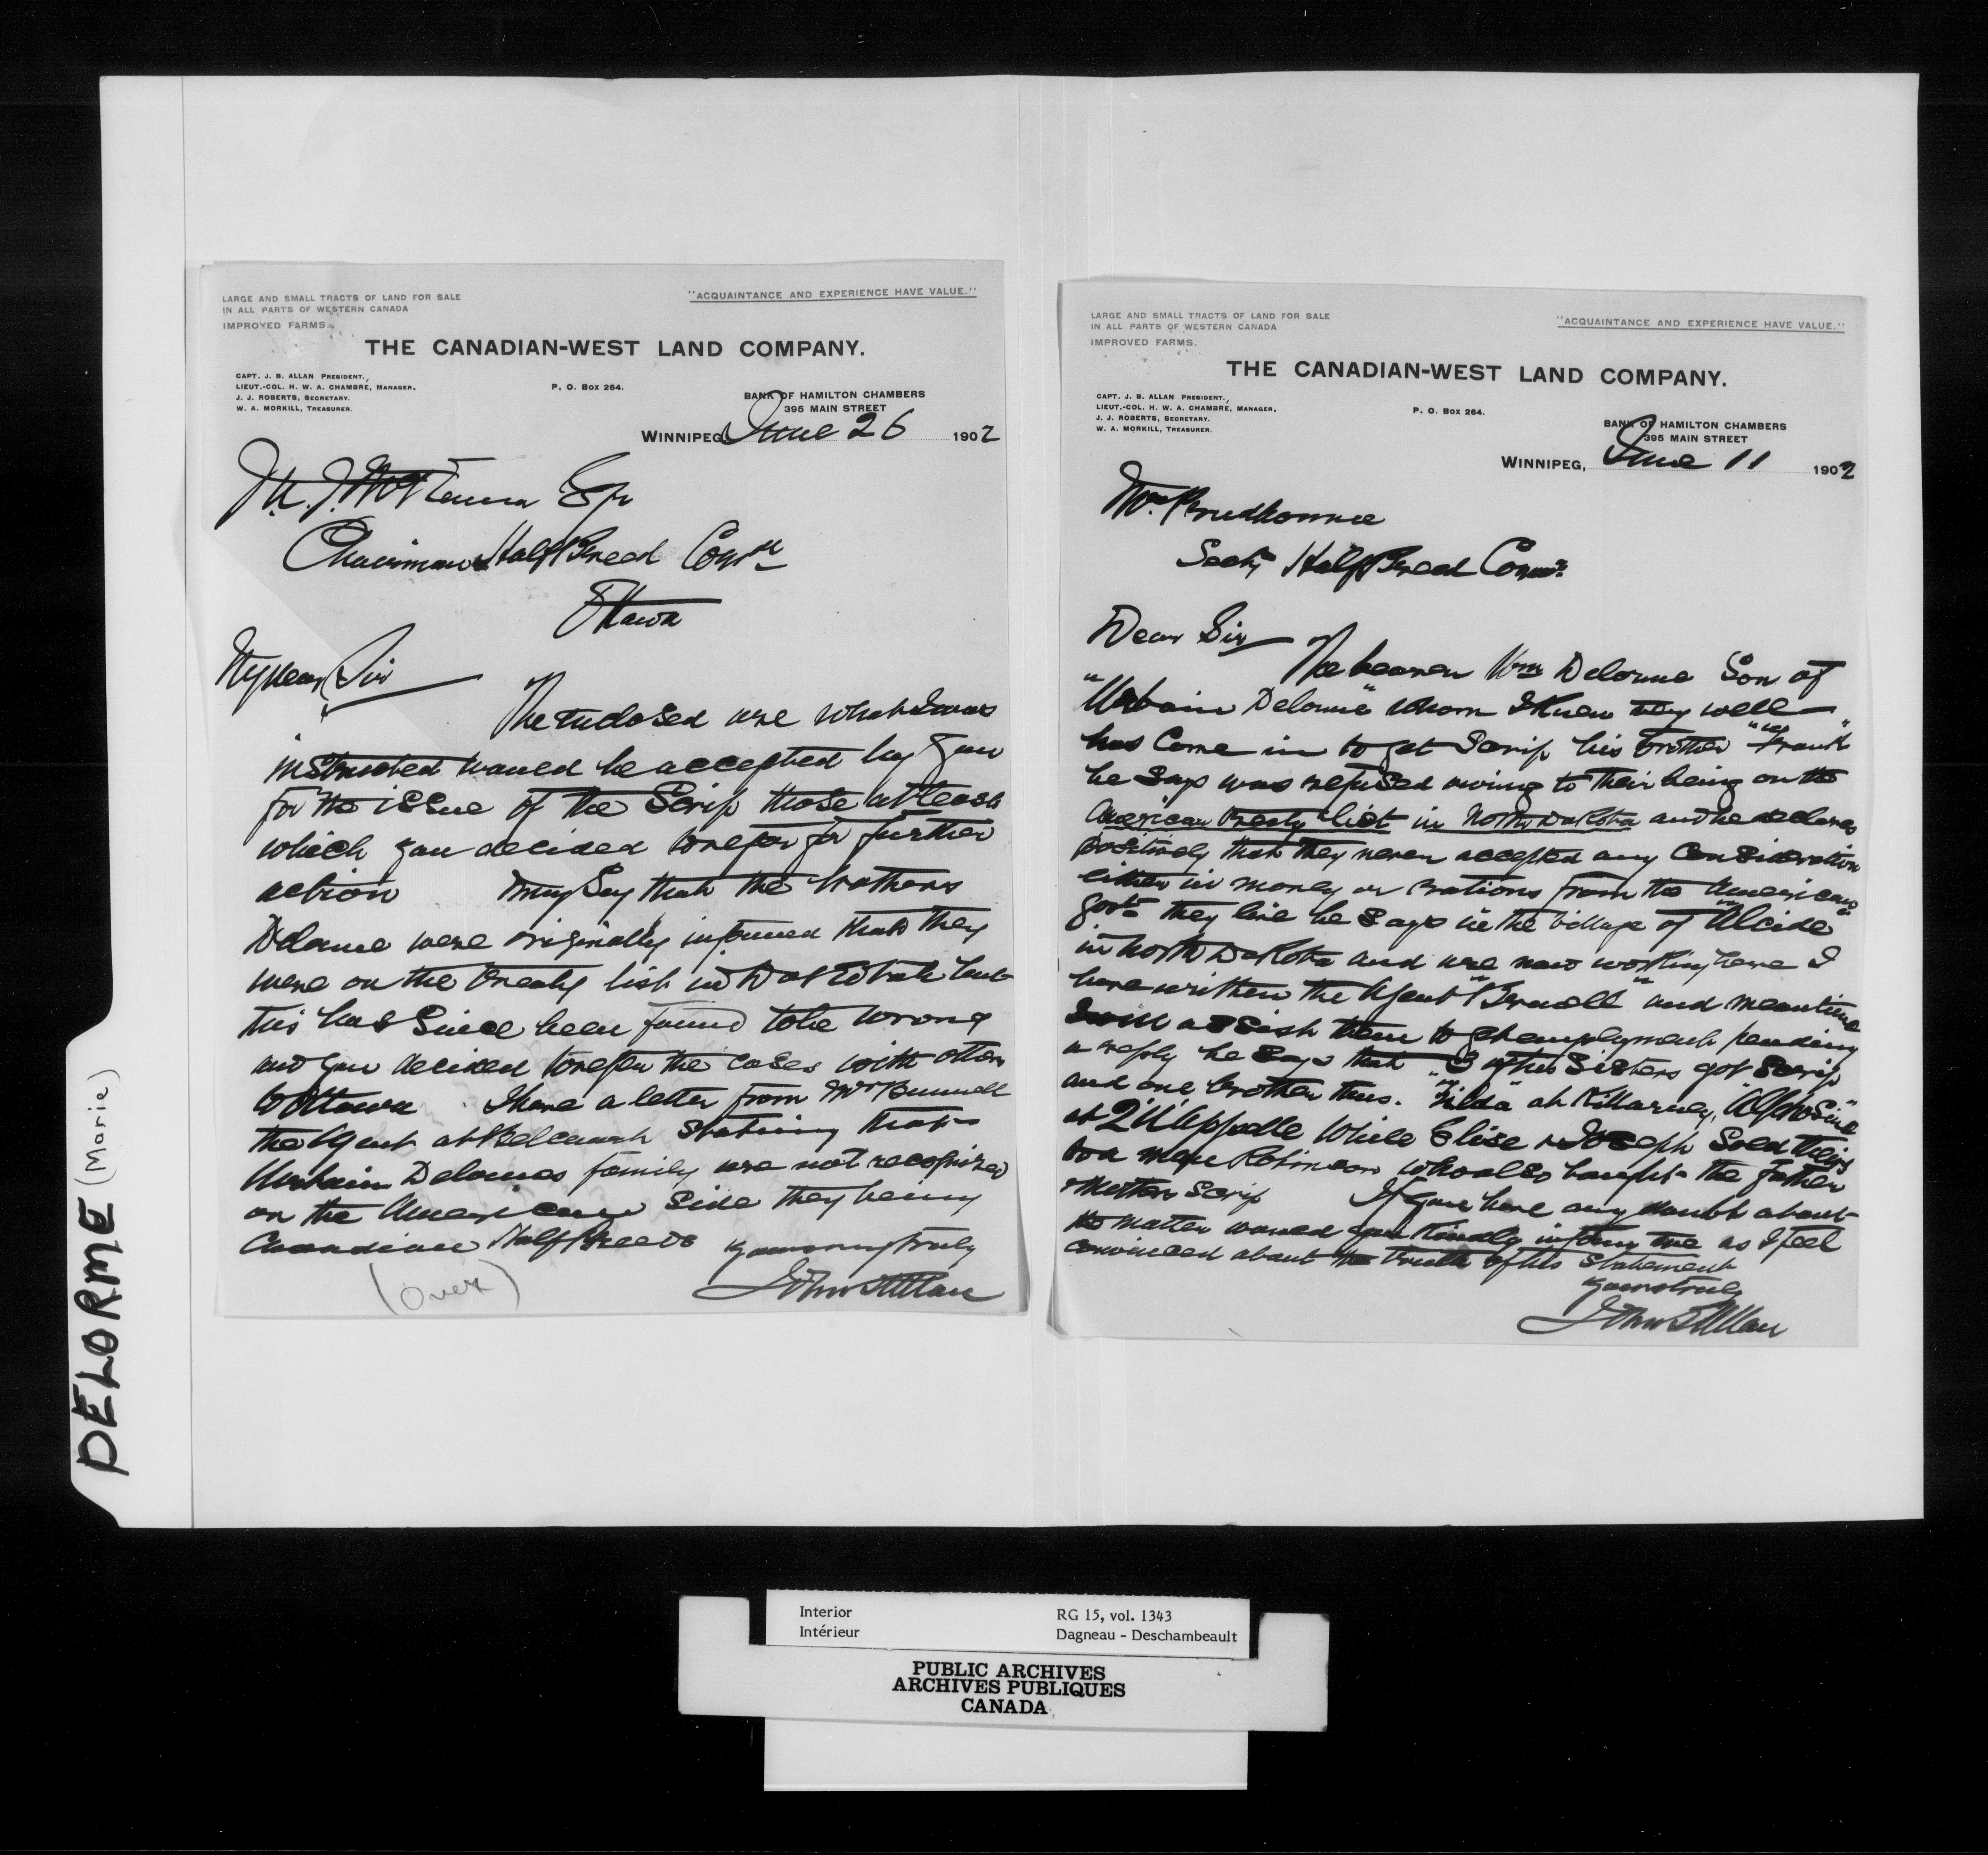 LARGE AND SMALL TRACTS OF LAND FOR SALE
IN ALL PARTS OF WESTERN CANADA
IMPROVED FARMS.
"ACQUAINTANCE AND EXPERIENCE HAVE VALUE."
THE CANADIAN-WEST LAND COMPANY.
CAPT. J. B. ALLAN PRESIDENT.,
LIEUT.-COL. H. W. A. CHAMBRE, MANAGER.
J. J. ROBERTS, SECRETARY.
W. A. MORKILL, TREASURER.
P. O. BOX 264.
BANK OF HAMILTON CHAMBERS
395 MAIN STREET
WINNIPEG June 26 1902
J. McKenna Esqr
Chairman Half Breed Comn
Ottawa
My dear Sir
The Enclosed are what I was
instructed would be accepted by you
for the issue of the Scrip those at least
which you decided to refer for further
action may Say that the brothers
Delorme were originally informed that they
were on the treaty list in but
this has Since been found to be wrong
and you decided to refer the cases with others
to Ottawa. I have a letter from Mr
the Agent at Belcourt stating that
Urbain Delormes family are not recognized
on the American Side they being
Canadian Half Breeds yours very truly
John B Allan
(over)
LARGE AND SMALL TRACTS OF LAND FOR SALE
IN ALL PARTS OF WESTERN CANADA
IMPROVED FARMS.
"ACQUAINTANCE AND EXPERIENCE HAVE VALUE."
THE CANADIAN-WEST LAND COMPANY.
CAPT. J. B. ALLAN PRESIDENT.,
LIEUT.-COL. H. W. A. CHAMBRE, MANAGER.
J. J. ROBERTS, SECRETARY.
W. A. MORKILL, TREASURER.
P. O. BOX 264.
BANK OF HAMILTON CHAMBERS
395 MAIN STREET
WINNIPEG, June 11 1902
Mr. Prudhomme
Secty Half Breed Comn.
Dear Sir
The bearer Wm Delorme Son of
"Urbain Delorme" whom I knew very well
has Come in to get Scrip his brother "Frank"
he says was refused owing to their being on the
American treaty list in North Dakota and he declares
positively that they never accepted any Consideration
either in money or rations from the American
Govt they live he says in the village of "Alcide"
in North Dakota and are now working here I
have written the Agent and meantime
I will assist them to get employment pending
a reply he says that 3 of his Sisters got Scrip
and one brother thus. "Zilda" at Killarney, "Alphosine"
at Qu'Appelle while Elise & Joseph Sold theirs
to a man Robinson who also bought the father
& Mothers Scrip If you have any doubt about
the matter would you kindly inform me as I feel
convinced about the truth of his Statement
yours truly
John B Allan
DELORME (Marie)
Interior
Intérieur
RG 15, vol. 1343
Dagneau - Deschambeault
PUBLIC ARCHIVES
ARCHIVES PUBLIQUES
CANADA